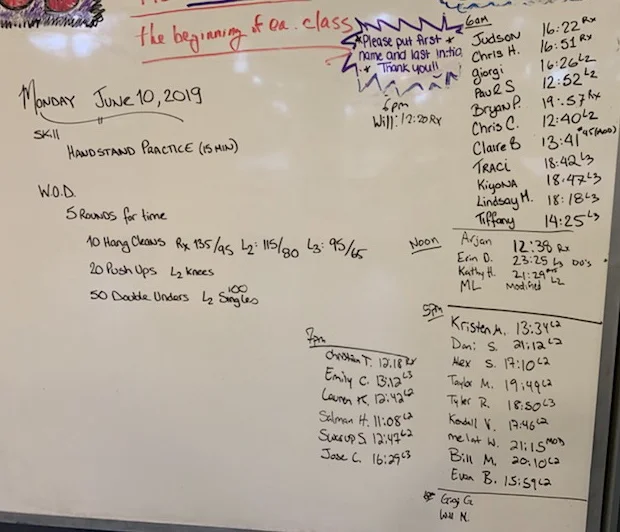 the beginning of ea. class
*Please put first
name and last initial
* Thank you!! *
Monday June 10, 2019
Skill
Handstand Practice (15 min)
W.O.D.
5 Rounds for time
10 Hang Cleans Rx 135/95 L2: 115/80 L3: 95/65
20 Push Ups L2 Knees
50 Double Unders L2 100 Singles
6am
Judson 16:22 Rx
Chris H. 16:51 Rx
giorgi 16:26 L2
Paul S 12:52 L2
Bryan P. 19:57 Rx
Chris C. 12:40 L2
Claire B 13:41
Traci 18:42 L3
Kiyona 18:47 L3
Lindsay M. 18:18 L3
Tiffany 14:25 L3
6pm
Will: 12:20 Rx
Noon
Arjan 12:38 Rx
Erin D. 23:25 L3 DU's
Kathy H. 21:29 L2
ML Modified
5pm
Kristen M. 13:34 L2
Dani S. 21:12 L2
Alex S. 17:10 L2
Taylor M. 19:49 L2
Tyler R. 18:50 L3
Kendall V. 17:46 L2
melat W. 21:15 MOD
Bill M. 20:10 L2
Evan B. 15:59 L2
7pm
Christian T. 12:18 Rx
Emily C. 13:12 L3
Lauren K. 12:42 L2
Salman H. 11:08 L2
Swarup S. 12:47 L2
Jose C. 16:29 L3
Will N.